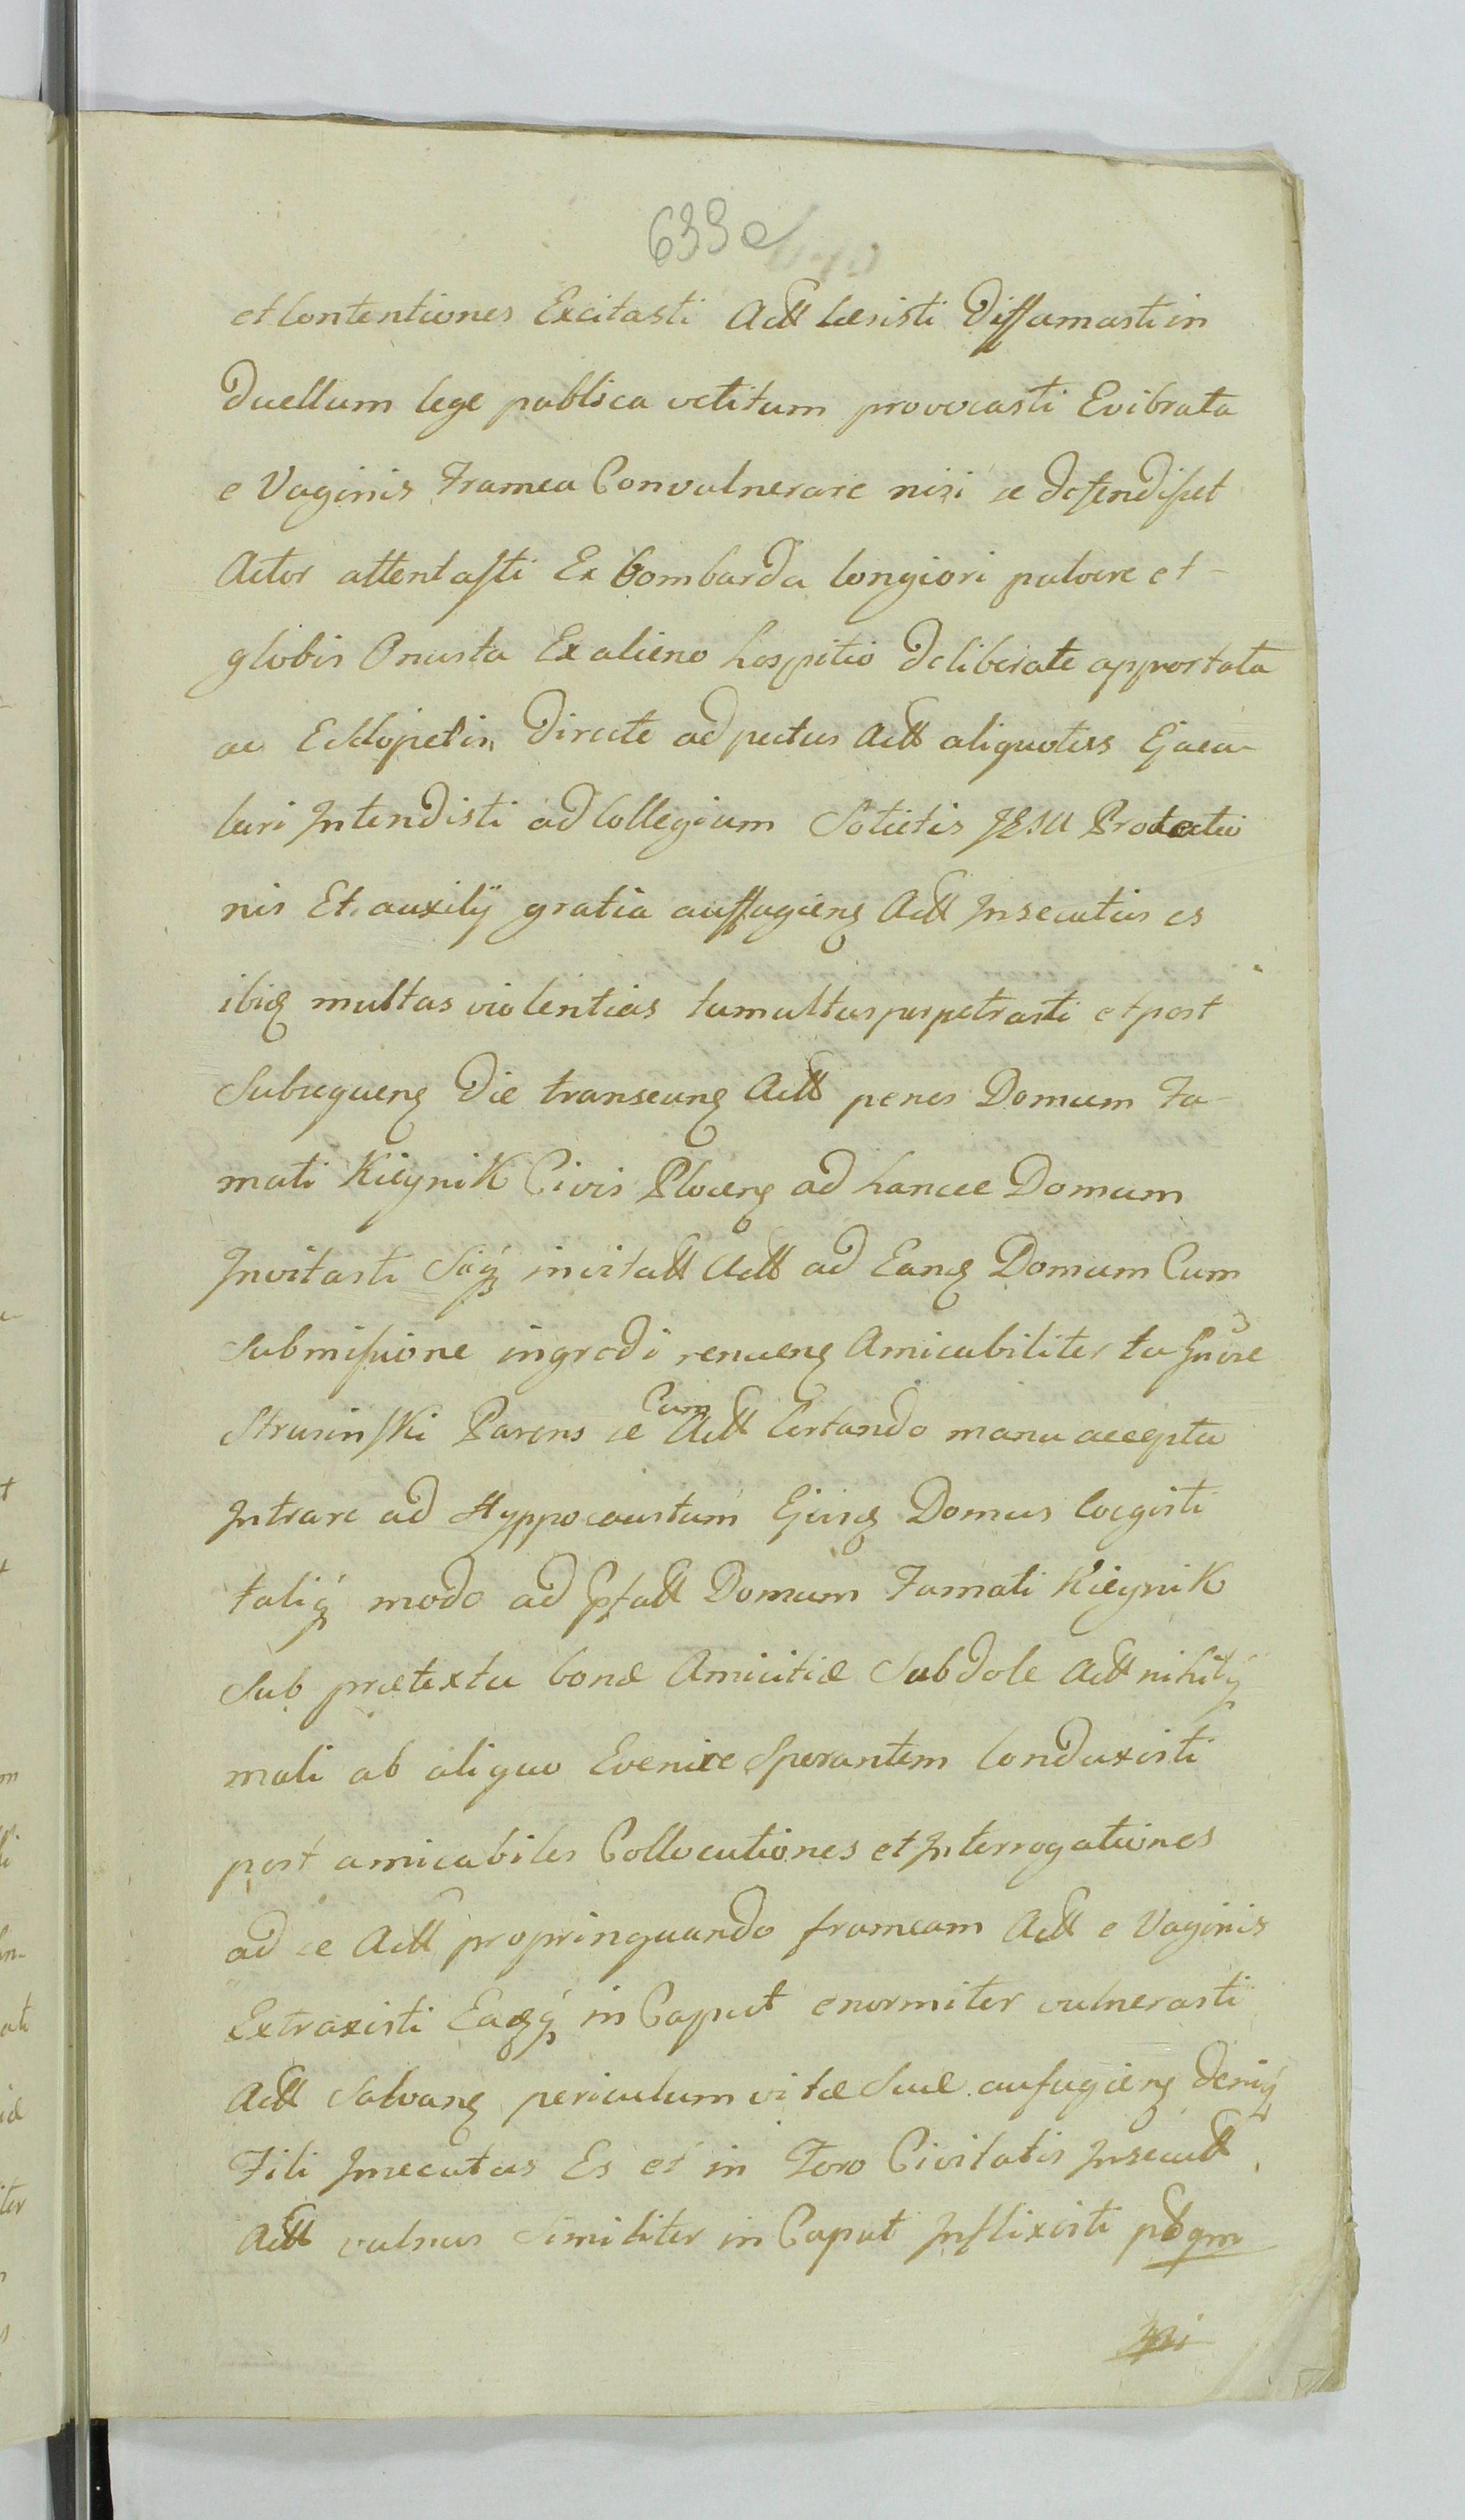 633
et Contentiones Excitasti Actt Læsisti Diffamasti in
Duellum lege publica vetitum provocasti Evibrata
e Vaginis Framea Convulnerare nisi se defendisset
Actor attentasti Ex bombarda longiori pulvere et
globis Onusta Ex alieno hospitio deliberate apportata
ac Esclopetis Directe ad pectus Actt aliquoties Ejacu-
lari Intendisti ad Collegium Sotietis JESU Protectio
nis Et auxilÿ gratia auffugieng Actt Insecutus es
ibiq multas violentias tumultus perpetrasti et post
Subsequeng Die transeung Actt penes Domum Fa-
mati Kieynik Civis Ploceng ad hancce Domum
Invitasti Sicq invitatt Actt ad Eang Domum Cum
Submissione ingredi renueng Amicabiliter tu Gnose
Strusinski Parens se Cum Actt Certando manu accepta
Intrare ad Hyppocaustum Ejusq Domus Coegisti
taliq modo ad Pfatt Domum Famati Kieynik
Sub prætextu bonæ Amicitiæ Subdole Actt nihilq
mali ab aliquo Evenire Sperantem Conduxisti
post amicabiles Collocutiones et Interrogationes
ad se Actt propinquando frameam Actt e Vaginis
Extraxisti Eaqq in Caput enormiter vulnerasti
Actt Salvang periculum vitæ Suæ aufugieng deniq
Fili Insecutus Es et in Foro Civitatis Insecutt
Actt vulnus Similiter in Caput Inflixisti